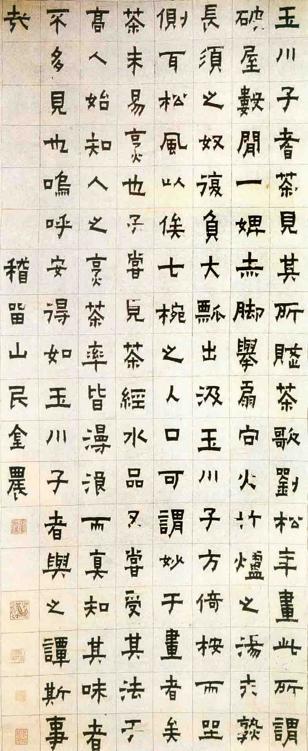 玉川子耆茶見其所賦茶歌劉松年畫此所謂
破屋數間一婢赤腳舉扇向火竹爐之湯未熟
長須之奴復負大瓢出汲玉川子方倚桉而坐
側耳松風以俟七椀之入口可謂妙于畫者矣
茶未易烹也予嘗見茶經水品又嘗受其法于
高人始知人之烹茶率皆漫浪而真知其味者
不多見也嗚呼安得如玉川子者與之譚斯事
哉 稽留山民金農